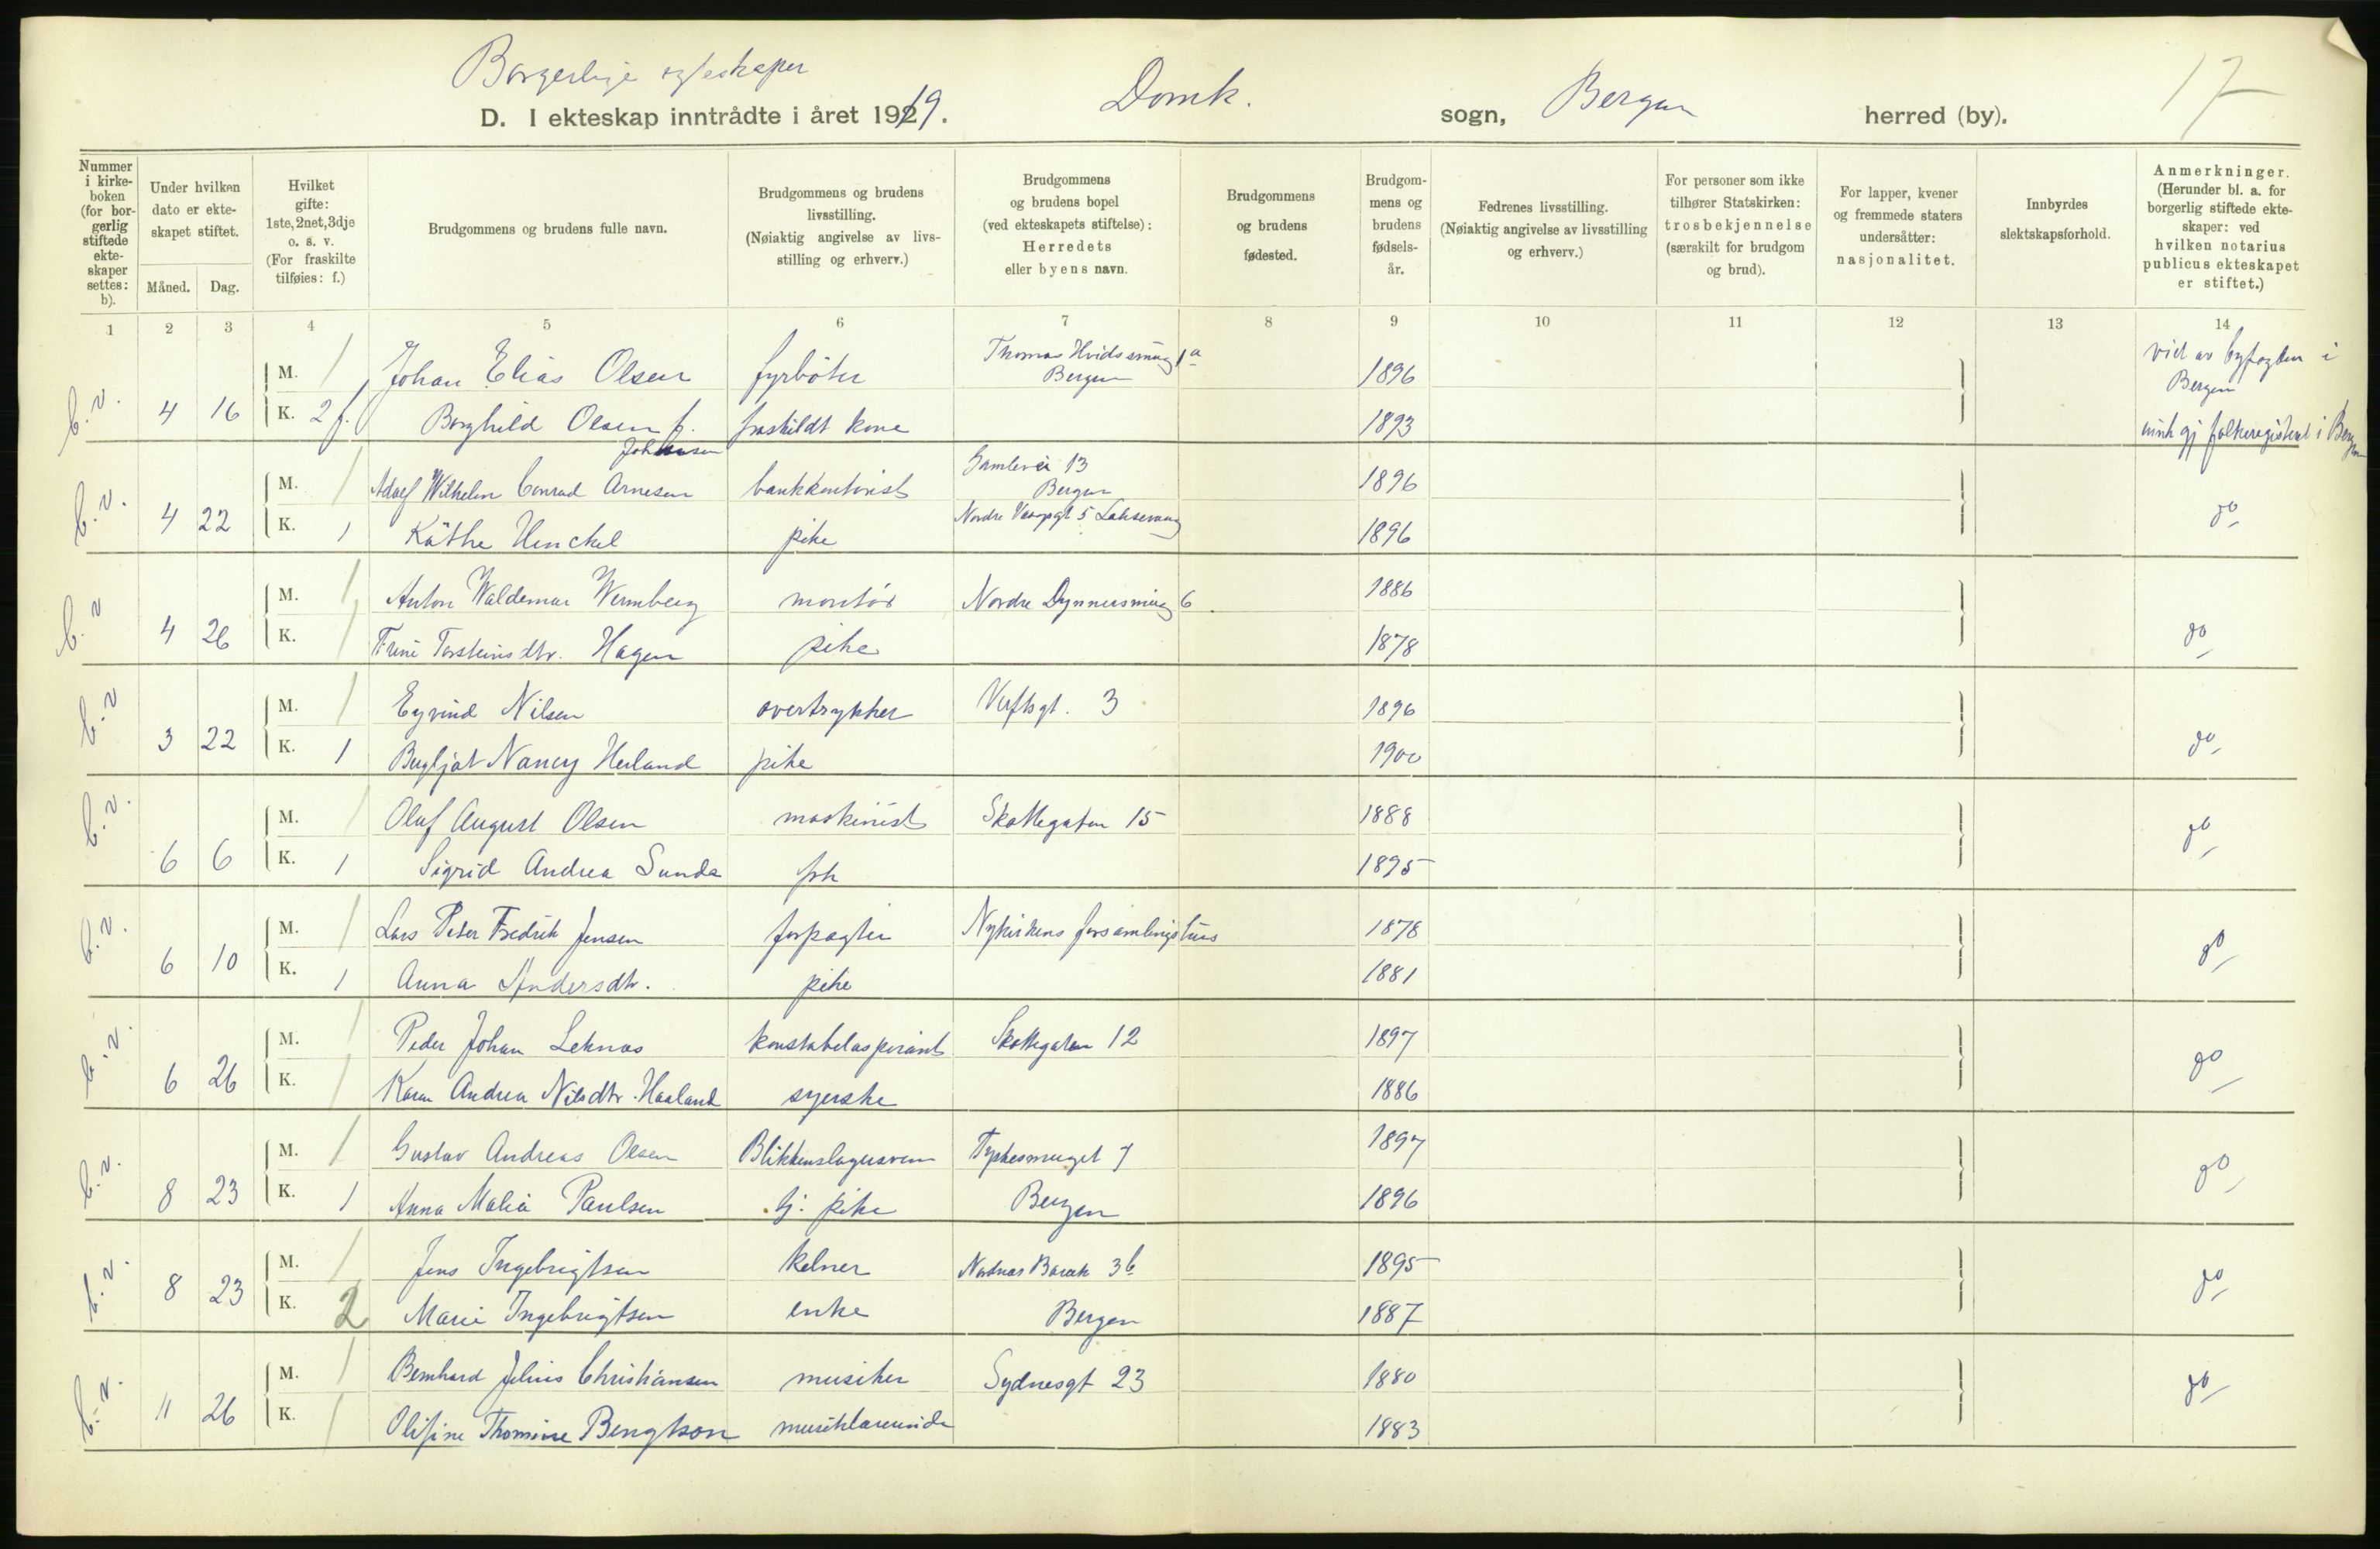 Borgerlige egteskaper
D. I ekteskap inntrådte i året 1919. Domk. sogn, Bergen herred (by). 17
Nummer i kirkeboken (for borgerlig stiftede ekteskaper settes: b).
Under hvilken dato er ekteskapet stiftet.
Måned. Dag.
Hvilket gifte: 1ste, 2net, 3dje o. s. v. (For fraskilte tilføies: f.)
Brudgommens og brudens fulle navn.
Brudgommens og brudens livsstilling. (Nøiaktig angivelse av livsstilling og erhverv.)
Brudgommens og brudens bopel (ved ekteskapets stiftelse): Herredets eller byens navn.
Brudgommens og brudens fødested.
Brudgommens og brudens fødselsår.
Fedrenes livsstilling. (Nøiaktig angivelse av livsstilling og erhverv.)
For personer som ikke tilhører Statskirken: trosbekjennelse (særskilt for brudgom og brud).
For lapper, kvener og fremmede staters undersåtter: nasjonalitet.
Innbyrdes slektskapsforhold.
Anmerkninger. (Herunder bl. a. for borgerlig stiftede ekteskaper: ved hvilken notarius publicus ekteskapet er stiftet.)
1 2 3 4 5 6 7 8 9 10 11 12 13 14
M. 1 Johan Elias Olsen fyrbøter Thomas Hvidssmug 1a Bergen 1896 viet av byfogden i Bergen
b.v. 4 16 K. 2 f. Borghild Olsen f. Johansen fraskildt kone 1893 innh gj folkeregisteret i Bergen
M. 1 Adolf Wilhelm Conrad Arnesen bankkontorist Gamlevei 13 Bergen 1896
b.v. 4 22 K. 1 Käthe Henckel pike Nordre 5 Laksevaag 1896 do
M. 1 Anton Waldemar Wermberg montør Nordre Dynnersmug 6. 1886
b.v 4 26 K. 1 Trine Torsteinsdtr. Hagen pike 1878 do
M. 1 Eyvind Nilsen overtrykker Verftsgt. 3 1896
b.v 3 22 K. 1 Bergljot Nancy Herland pike 1900 do
M. 1 Oluf August Olsen maskinist Skottegaten 15 1888
b.v. 6 6 K. 1 Sigrid Andrea Sunde frk 1895 do
M. 1 Lars Peter Fredrik Jensen forpagter Nykirkens forsamlingshus 1878
b.v. 6 10 K. 1 Anna Andersdtr. pike 1881 do
M. 1 Peder Johan Leknæs konstabelaspirant Skottegaten 12 1897
b.v. 6 26 K. 1 Karen Andrea Nilsdtr. Haaland syerske 1886 do
M. 1 Gustav Andreas Olsen Blikkenslagersvenn Tyskesmuget 7 1897
b.v. 8 23 K. 1 Anna Malia Paulsen tj. pike Bergen 1896 do
M. 1 Jens Ingebrigtsen kelner Nordnæs Barak 3b 1895
b.v. 8 23 K. 2 Marie Ingebrigtsen enke Bergen 1887 do
M. 1 Bernhard Julius Christiansen musiker Sydnesgt 23 1880
b.v. 11 26 K. 1 Olifine Thomine Bengtson musiklærerinde 1883 do